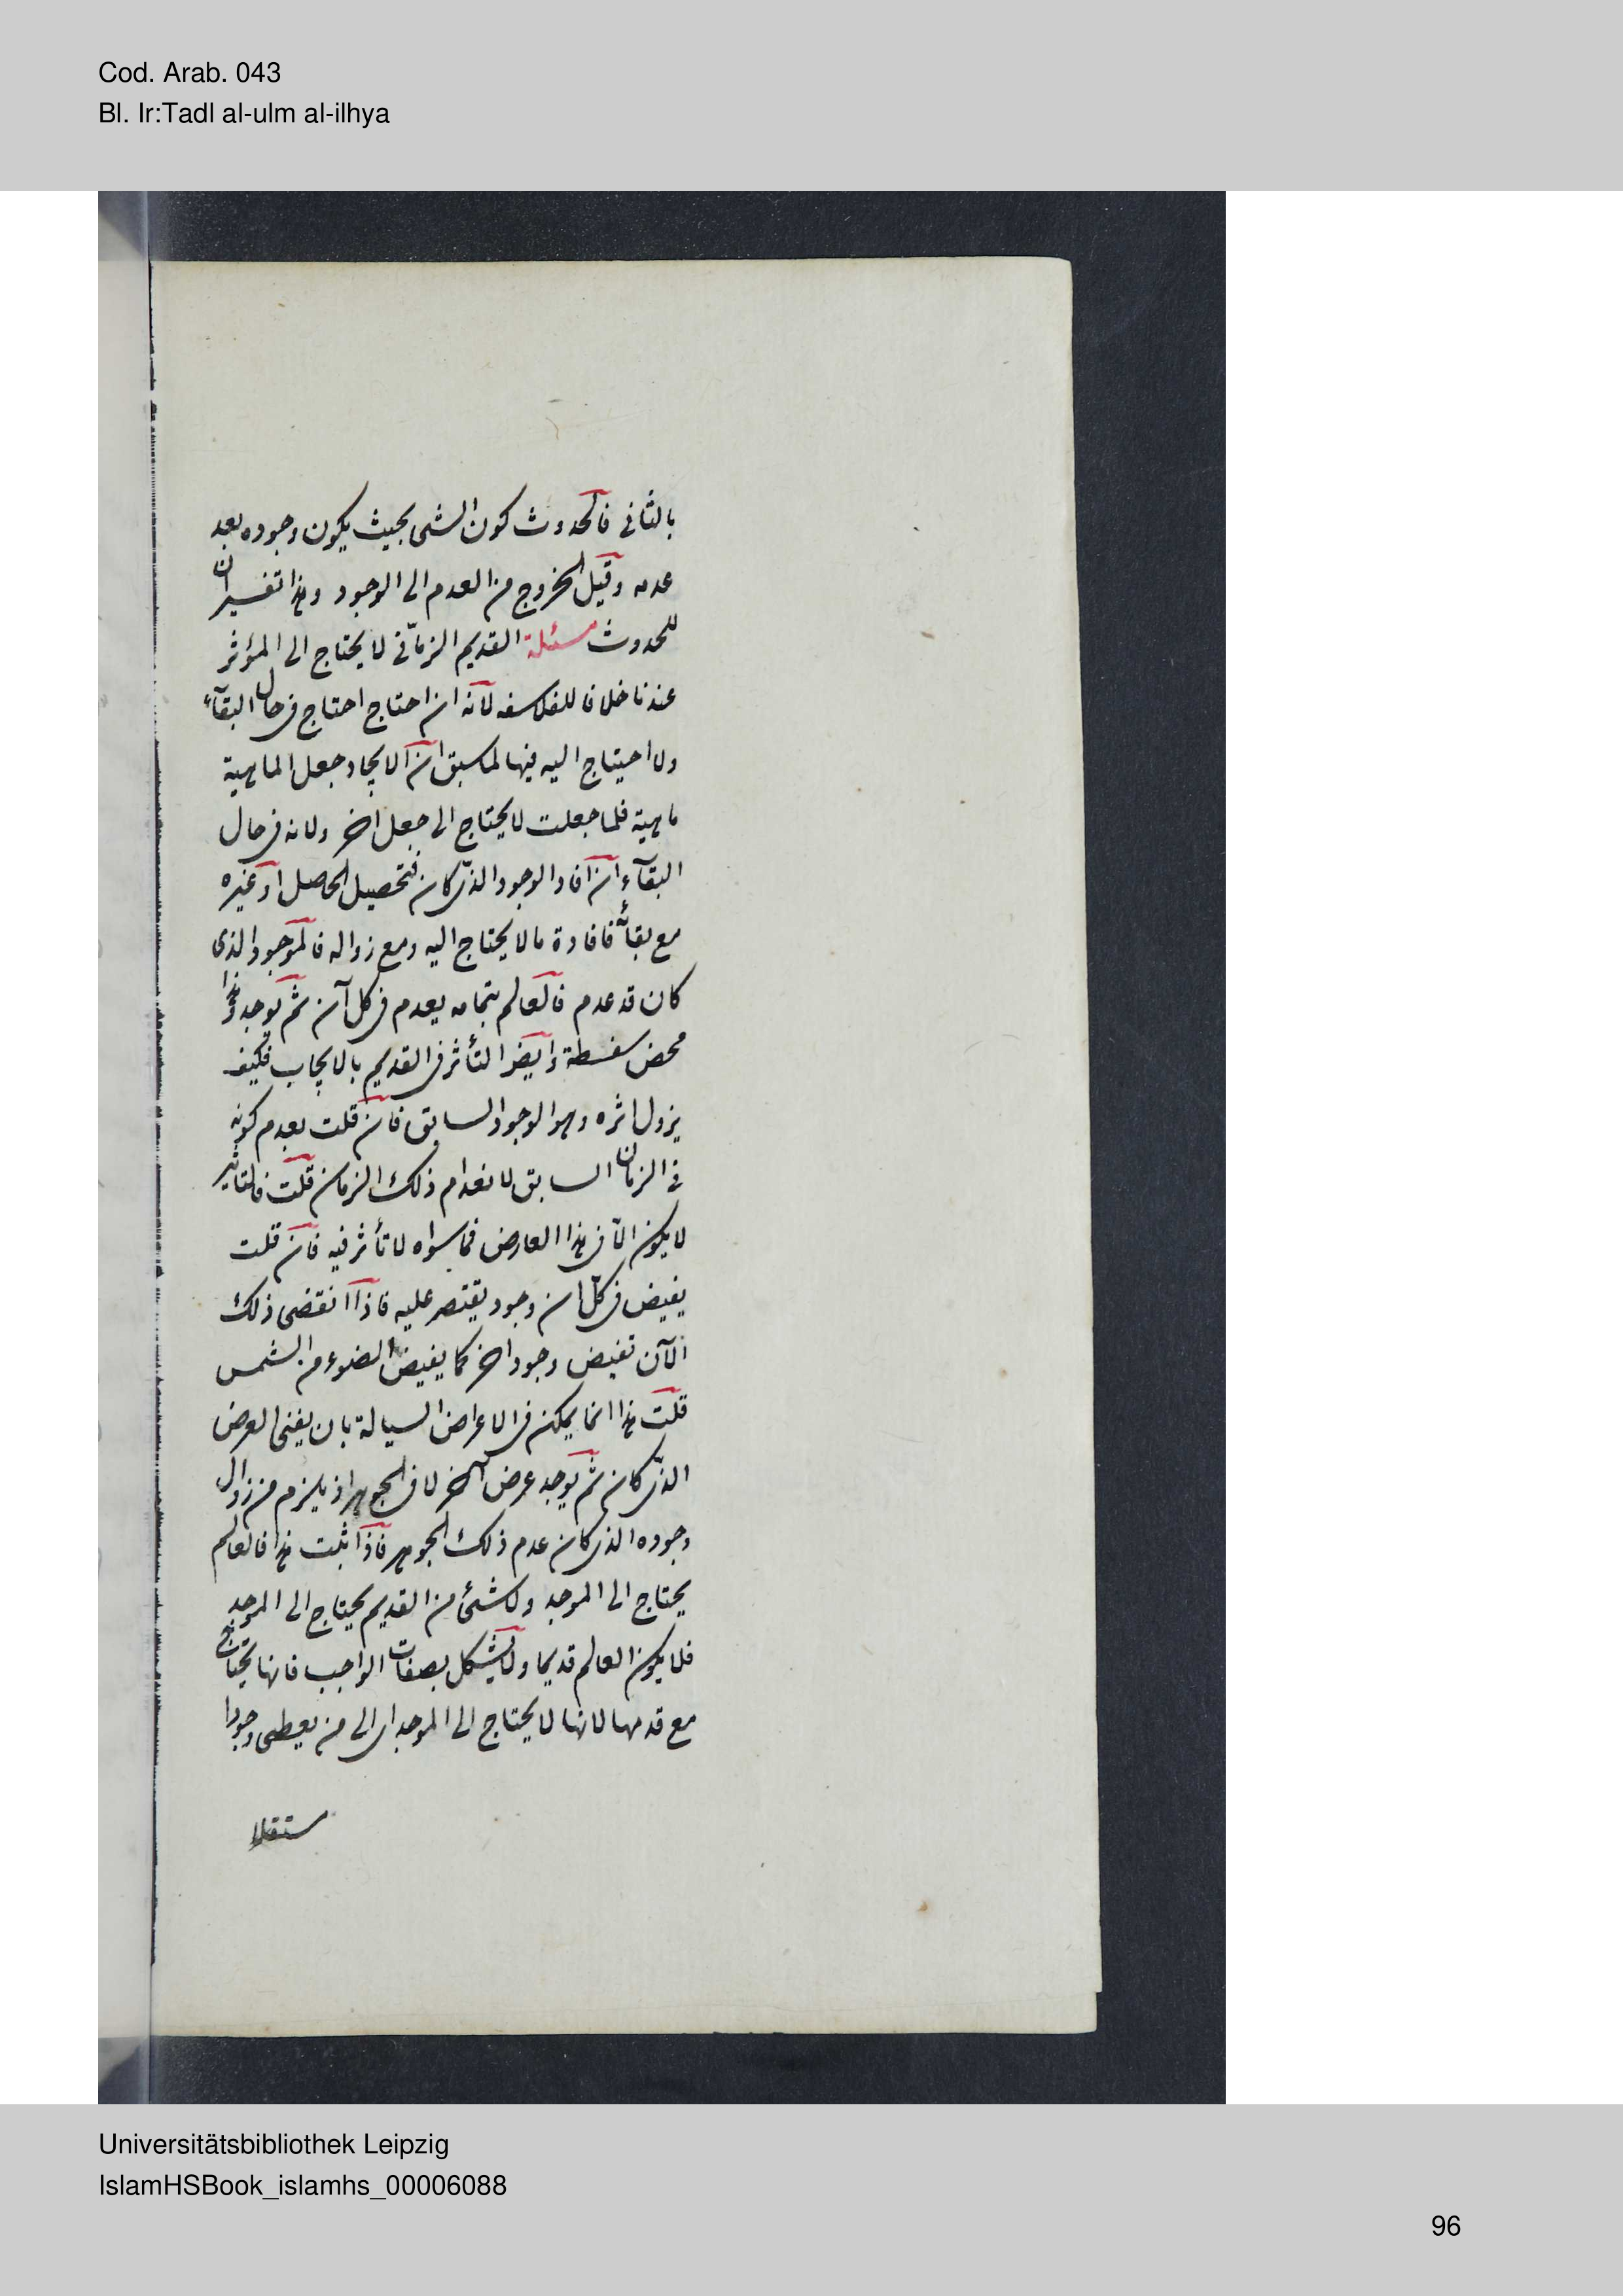 Cod. Arab. 043
Bl. Ir:Tadl al-ulm al-ilhya
بالثانى فالحدوث كون الشى بحيث يكون وجوده بعد
عدمه وقيل الخروج من العدم الى الوجود وهذا تفسير ان
للحدوث مسئلة القديم الزمانى لا يحتاج الى المؤثر
عندنا خلافا للفلاسفه لانه ان احتاج احتاج فى حال البقآء
ولا احتياج اليه فيها لما سبق ان الايجاد جعل الماهية
ماهية فلما جعلت لا يحتاج الى جعل اخر ولانه فى حال
البقآء ان افاد الوجود الذى كان فتحصيل الحاصل او غيره
مع بقائه فافادة ما لا يحتاج اليه ومع زواله فالموجود الذى
كان قد عدم فالعالم بتمامه يعدم فى كل آن ثم يوجد وهذا
محض سفسطة وايضا التأثر فى القديم بالايجاب فكيف
يزول اثره وهو الوجود السابق فان قلت يعدم كونه
فى الزمان السابق لانعدام ذلك الزمان قلت فالتاثير
لا يكون الا فى هذا العارض فما سواه لا تأثر فيه فان قلت
يفيض فى كل ان وجود يقتصر عليه فاذا انقضى ذلك
الآن تفيض وجود اخر كما يفيض الضوء من الشمس
قلت هذا انما يمكن فى الاعراض السيالة بان يفنى العرض
الذى كان ثم يوجد عرض آخر لا فى الجوهر اذ يلزم من زوال
وجوده الذى كان عدم ذلك الجوهر فاذا ثبت هذا فالعالم
يحتاج الى الموجد ولا شئ من القديم يحتاج الى الموجد
فلا يكون العالم قديما ولا يشكل بصفات الواجب فانها تحتاج
مع قدمها لانها لا يحتاج الى الموجد اى الى من يعطى وجودا
مستقلا
Universitätsbibliothek Leipzig
IslamHSBook_islamhs_00006088
96